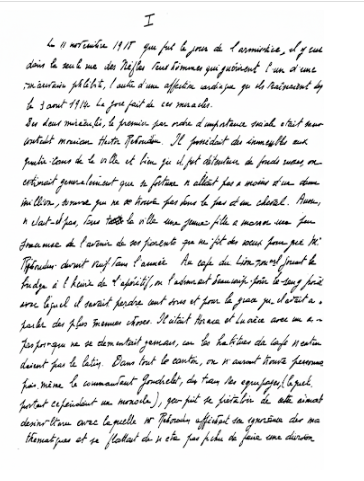 I
Le 11 novembre 1918 qui fut le jour de l'armistice, il y eut
dans la seule rue des Trèfles deux hommes qui guérirent l'un d'une
mauvaise phlébite, l'autre d'une affection cardiaque qu'ils traînaient dep
le 3 août 1914. La joie fait de ces miracles.
Des deux miraculés, le premier par ordre d'importance sociale était
monsieur Hector Reboudin. Il possédait des immeubles aux
quatre coins de la ville et bien qu'il fût détenteur de fonds russes, on
estimait généralement que sa fortune n'allait pas à moins d'un demi
million, somme qui ne se trouve pas sous le pas d'un cheval. Aussi,
n'était-il pas, dans toute la ville une jeune fille à marier un peu
de l'avenir de ses parents qui ne fît des voeux pour que Mr
Reboudin devînt veuf dans l'année. Au café du Lion d'or où il jouait le
bridge à l'heure de l'apéritif, on l'admirait beaucoup pour le sang froid
avec lequel il savait perdre cent sous et pour la grâce qu'il avait à
parler des plus menues choses. Il citait Horace et Lucrèce avec un à-
propos qui ne se démentait jamais, car les habitués du café n'enten
daient pas le latin. Dans tout le canton, on n'aurait trouvé personne
pas même le commandant Gondrelet, du train des équipages, (lequel
portait cependant un monocle), qui pût se prévaloir de cette aimable
désinvolture avec laquelle Mr Reboudin affichait son ignorance des ma
thématiques et se flattait de n'être pas fichu de faire une division